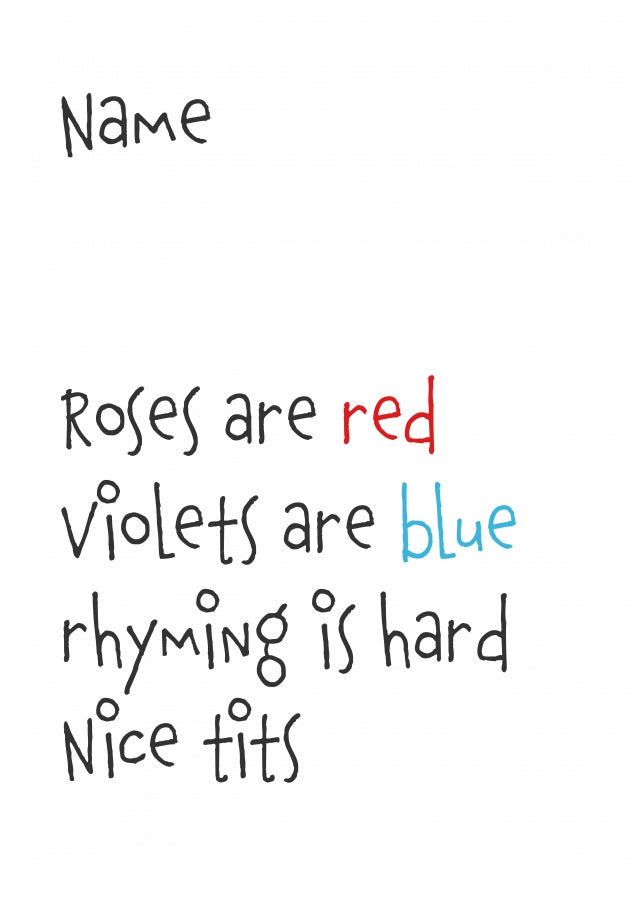 Name
Roses are red
Violets are blue
rhyming is hard
Nice tits